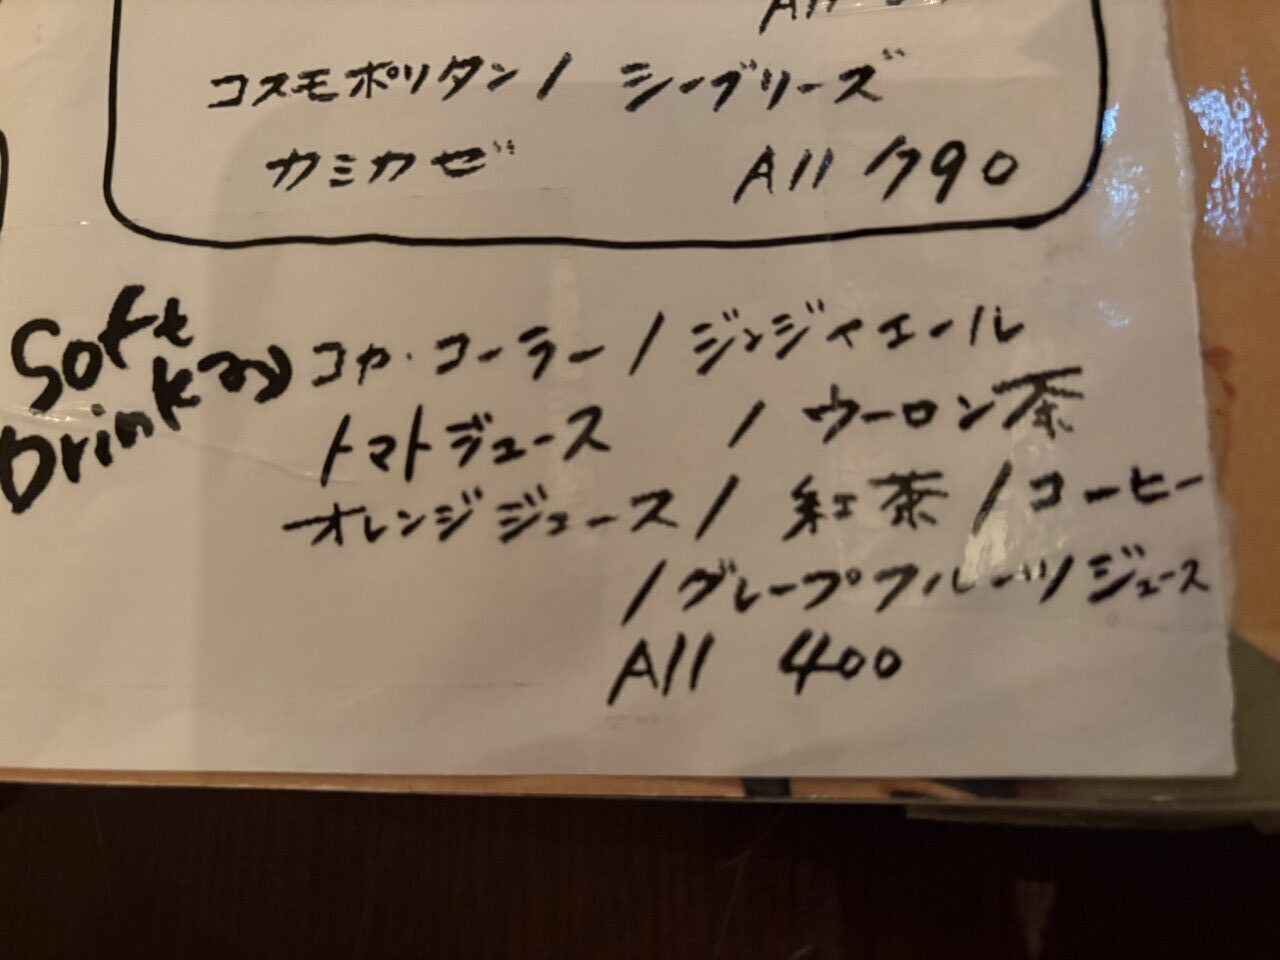 All
コスモポリタン / シーブリーズ
カミカゼ All 790
Soft
Drink
コカ・コーラー / ジンジャエール
トマトジュース / ウーロン茶
オレンジジュース / 紅茶 / コーヒー
/ グレープフルーツジュース
All 400